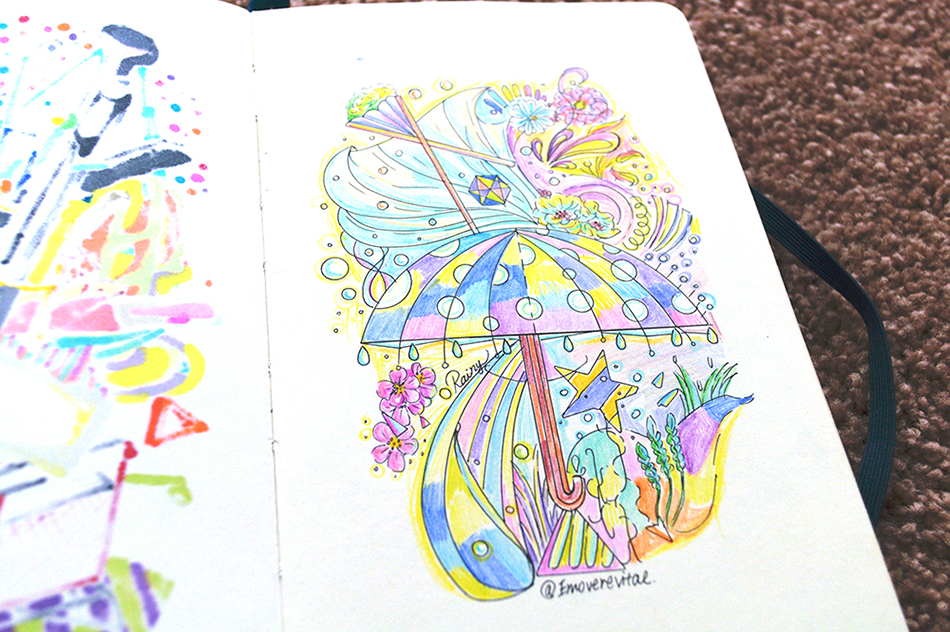 Rainy
@Emoverevitae.